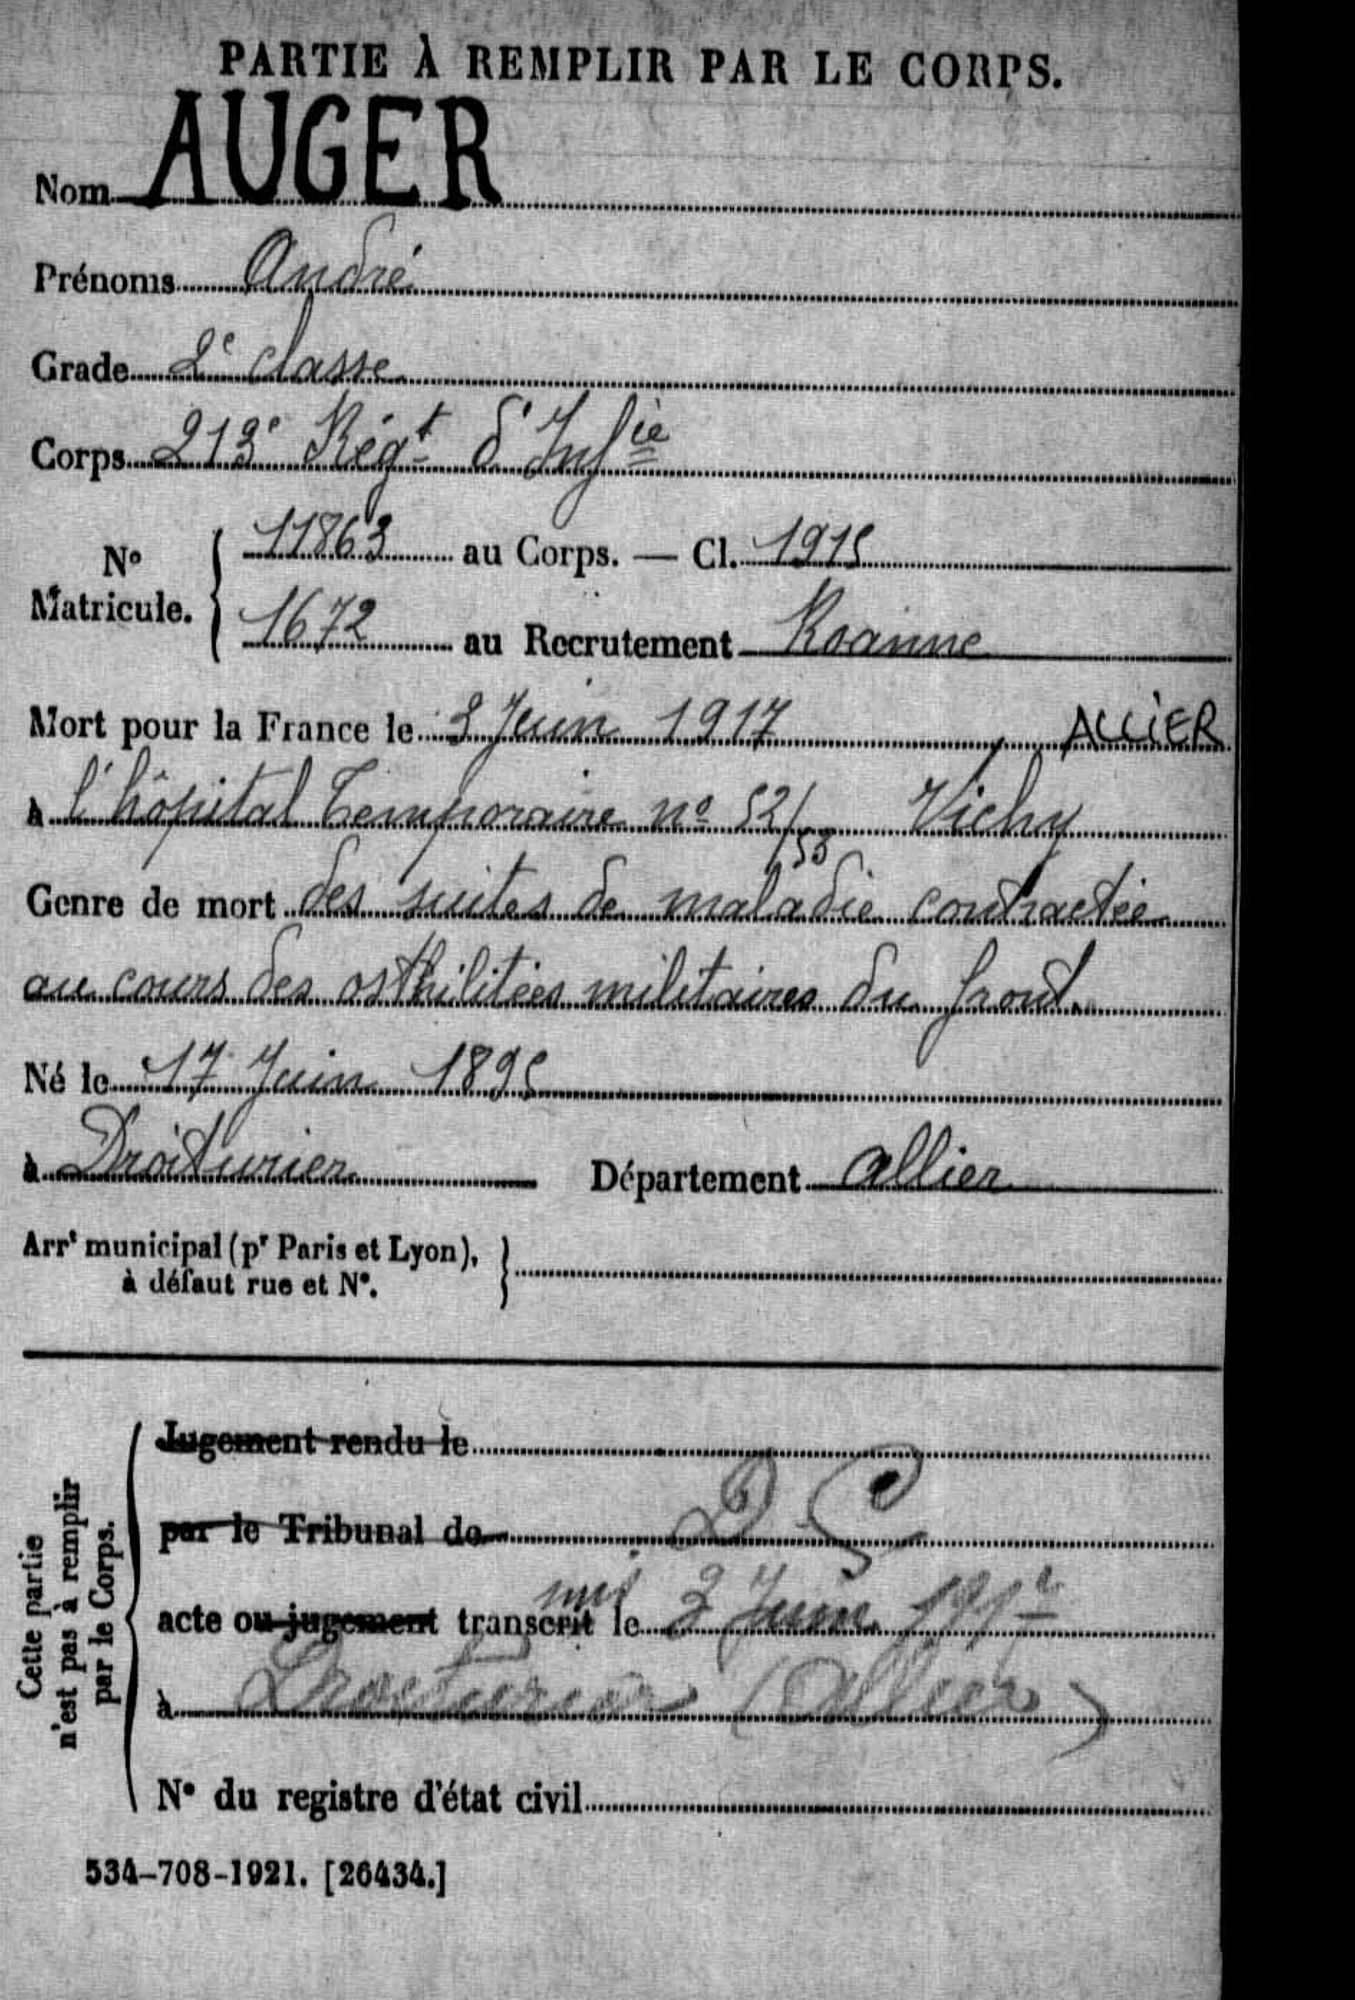 PARTIE À REMPLIR PAR LE CORPS.
Nom AUGER
Prénoms André
Grade 2e classe
Corps 213e Régt d'Infie
No Matricule. 11863 au Corps. — Cl. 1915
1672 au Recrutement Roanne
Mort pour la France le 3 Juin 1917 ALLIER
à l'hôpital Temporaire no 52/53 Vichy
Genre de mort des suites de maladie contractée
au cours des osthilitées militaires du front.
Né le 17 Juin 1895
à Droiturier Département Allier
Arrt municipal (pr Paris et Lyon), à défaut rue et No.
Cette partie n'est pas à remplir par le Corps.
Jugement rendu le
par le Tribunal de D C
acte ou jugement transcrit le 3 Juin 1917
à Droiturier (Allier)
No du registre d'état civil
534-708-1921. [26434.]